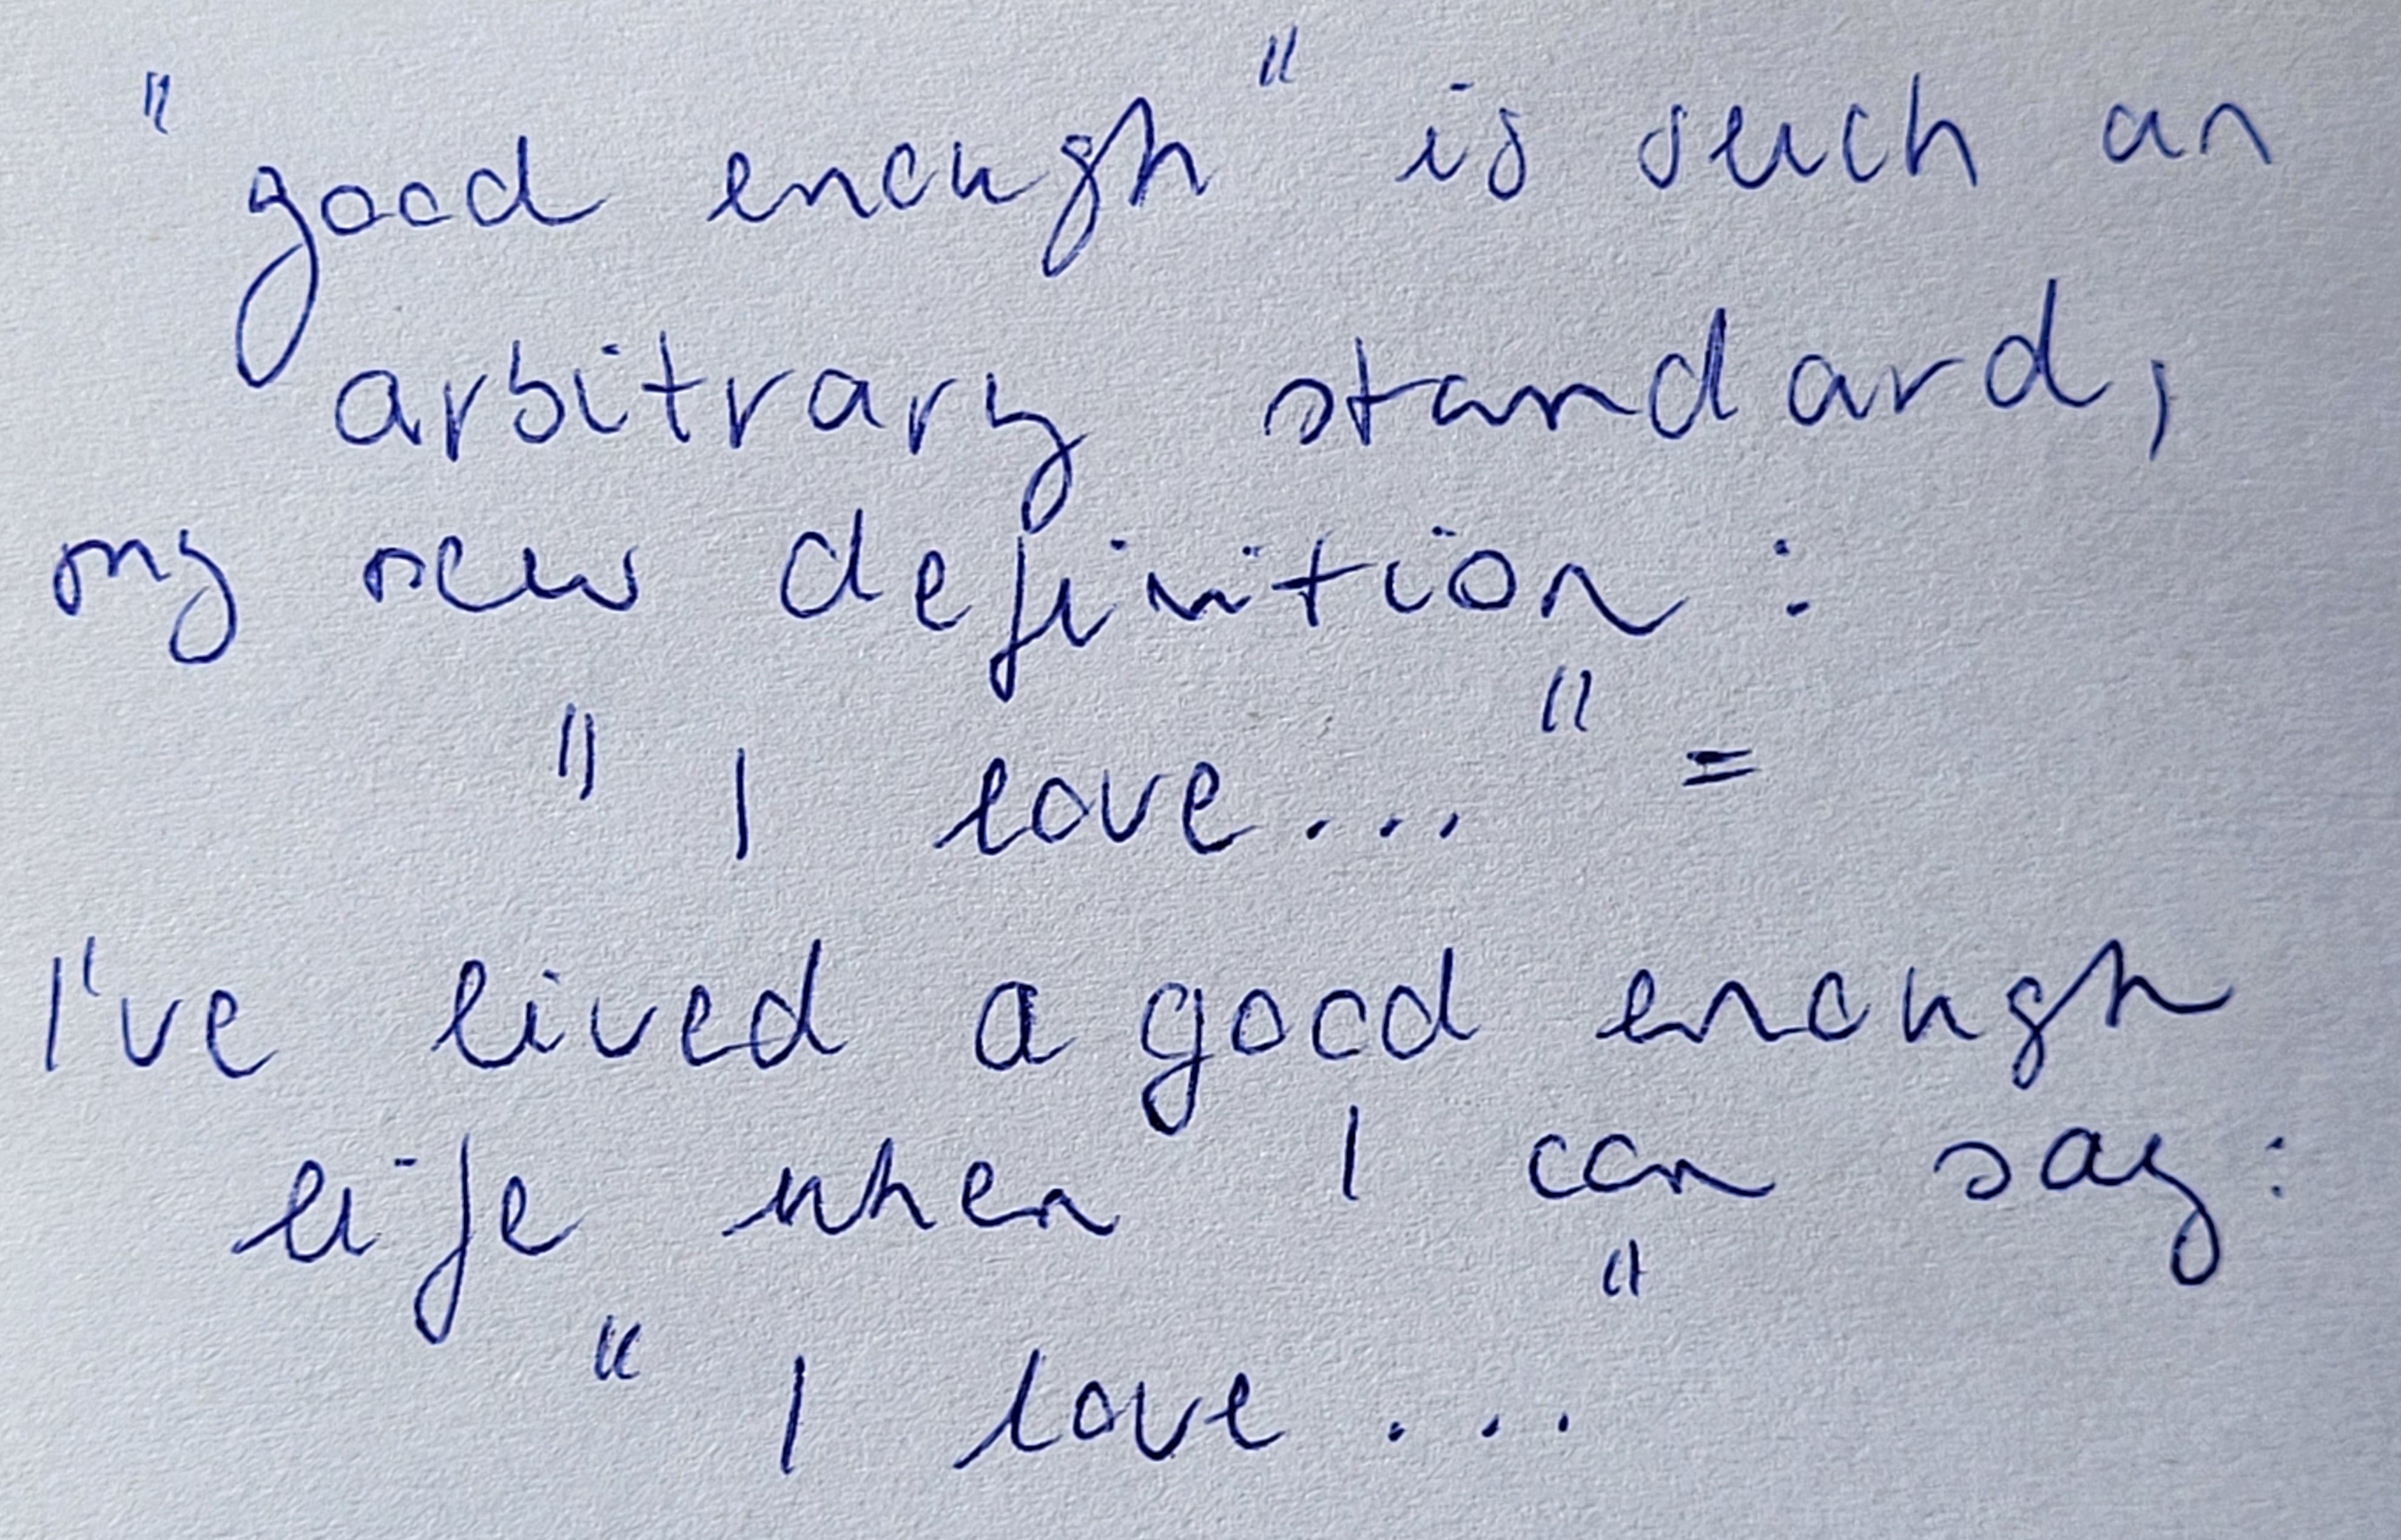 "good enough" is such an
arbitrary standard,
my new definition:
"I love..." =
I've lived a good enough
life when I can say:
"I love..."